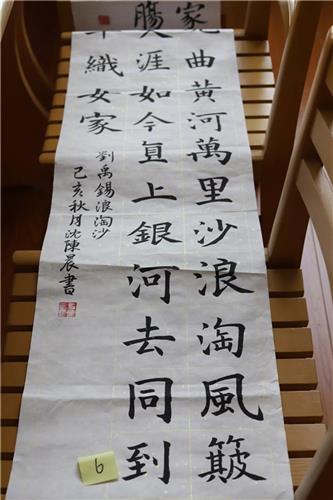 家
腸
曲黃河萬里沙浪淘風簸
天涯如今直上銀河去同到
牛織女家
劉禹錫浪淘沙
己亥秋月沈陳晨書
6